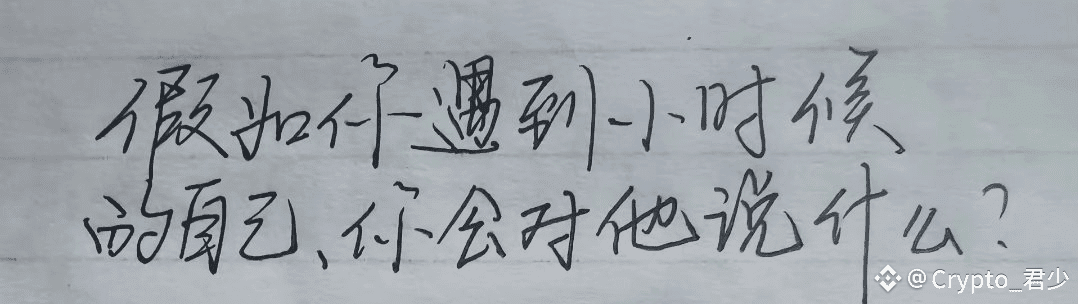 假如你遇到小时候
的自己、你会对他说什么?
@Crypto_君少